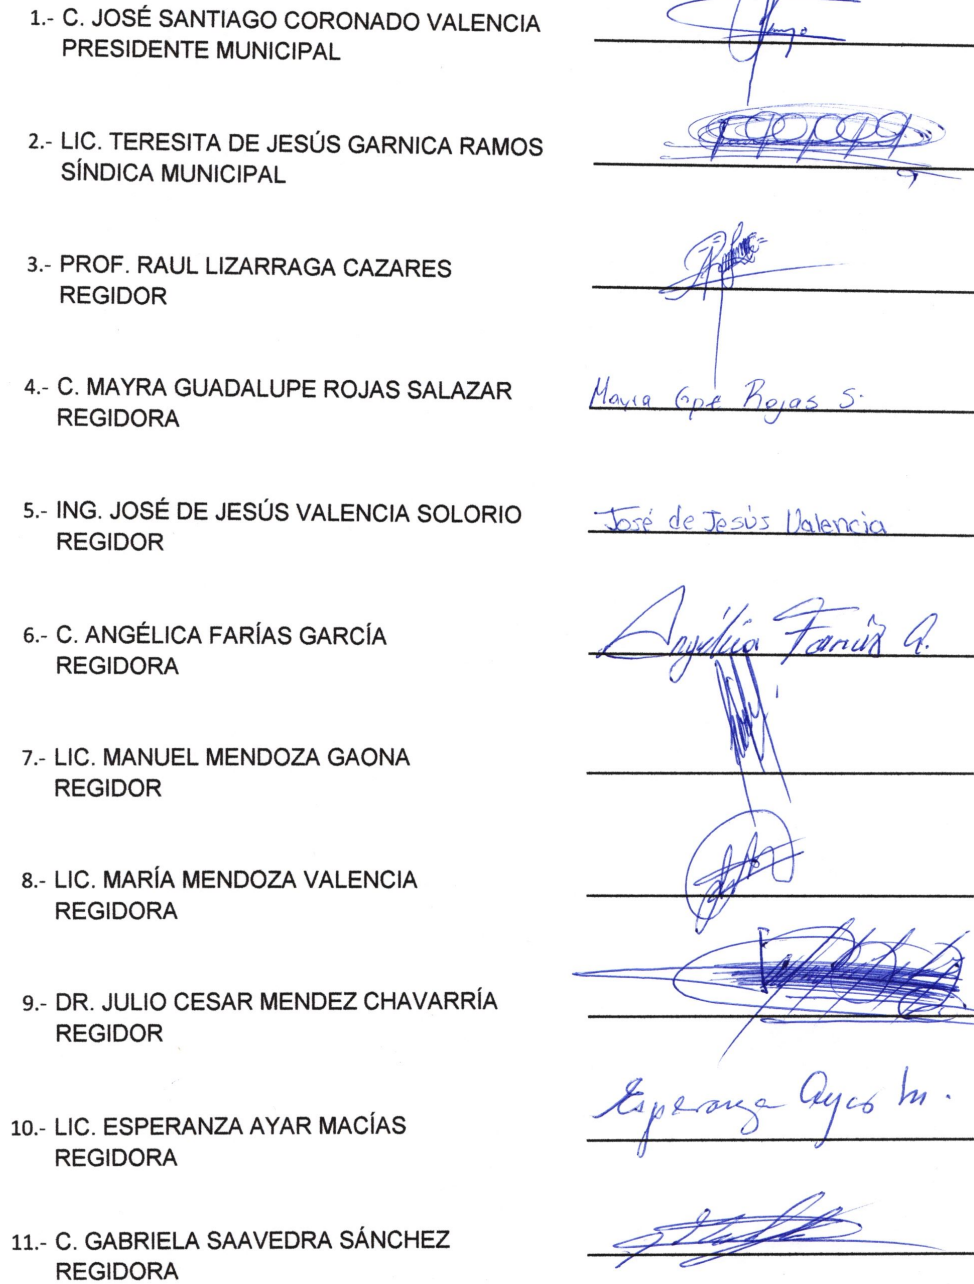 1.- C. JOSÉ SANTIAGO CORONADO VALENCIA
PRESIDENTE MUNICIPAL
2.- LIC. TERESITA DE JESÚS GARNICA RAMOS
SÍNDICA MUNICIPAL
3.- PROF. RAUL LIZARRAGA CAZARES
REGIDOR
4.- C. MAYRA GUADALUPE ROJAS SALAZAR
REGIDORA
Mayra Gpe Rojas S.
5.- ING. JOSÉ DE JESÚS VALENCIA SOLORIO
REGIDOR
José de Jesús Valencia
6.- C. ANGÉLICA FARÍAS GARCÍA
REGIDORA
Angélica Farías G.
7.- LIC. MANUEL MENDOZA GAONA
REGIDOR
8.- LIC. MARÍA MENDOZA VALENCIA
REGIDORA
9.- DR. JULIO CESAR MENDEZ CHAVARRÍA
REGIDOR
10.- LIC. ESPERANZA AYAR MACÍAS
REGIDORA
Esperanza Ayar M.
11.- C. GABRIELA SAAVEDRA SÁNCHEZ
REGIDORA